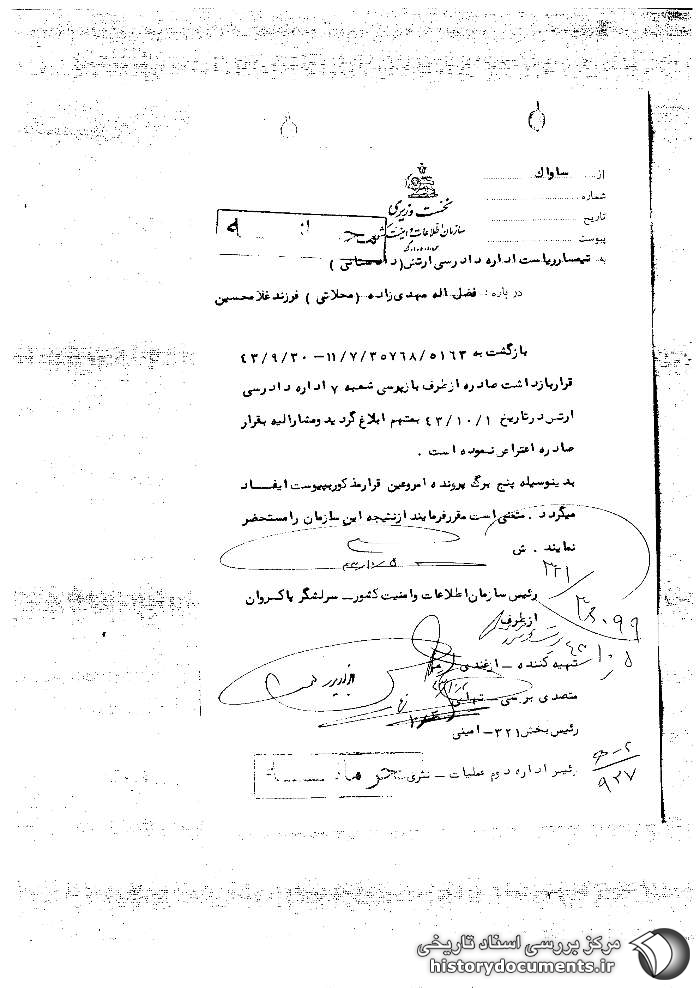 از ساواک
شماره
تاریخ
پیوست
نخست وزیری
سازمان اطلاعات و امنیت کشور
به تیمسار ریاست اداره دادرسی ارتش (دادستانی)
درباره : فضل اله مهدی زاده (محلاتی) فرزند غلامحسین
بازگشت به ۱۱/۷/۳۵۷۶۸/۵۱۶۳ – ۴۳/۹/۳۰
قرار بازداشت صادره از طرف بازپرسی شعبه ۷ اداره دادرسی
ارتش در تاریخ ۴۳/۱۰/۱ بمتهم ابلاغ گردید و مشارالیه بقرار
صادره اعتراض ننموده است .
بدینوسیله پنج برگ پرونده امر و عین قرار مذکور بپیوست ایفاد
میگردد . متمنی است مقرر فرمایند از نتیجه این سازمان را مستحضر
نمایند . ش
رئیس سازمان اطلاعات و امنیت کشور – سرلشگر پاکروان
از طرف
تهیه کننده – ارغندی
متصدی بررسی –
رئیس بخش ۳۲۱ – امینی
رئیس اداره دوم عملیات –
۳۲۱
۳۶۰۹۹
۹۲۷
مرکز بررسی اسناد تاریخی
historydocuments.ir